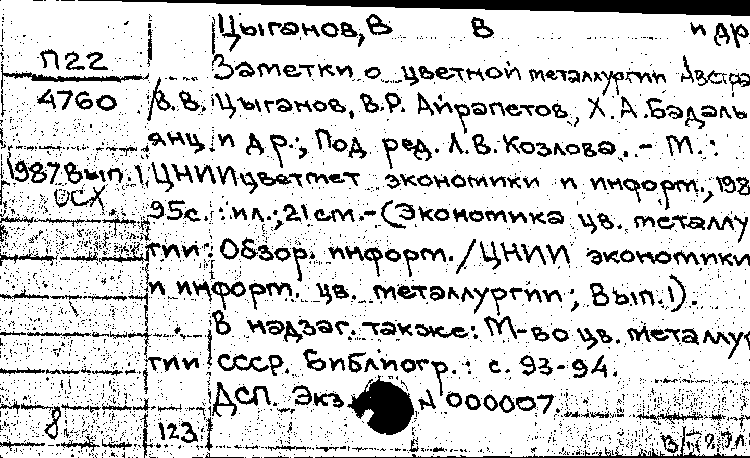 Цыганов, В В и др
П22
Заметки о цветной металлургии Австра
4760
/В.В. Цыганов, В.Р. Айрапетов, Х.А. Бадаль
янц и др.; Под ред. Л.В. Козлова. - М. :
1987 Вып. 1
ЦНИИцветмет экономики и информ., 198
ОСХ
95с. : ил.; 21 см. - (Экономика цв. металлу
гии : Обзор. информ. / ЦНИИ экономики
и информ. цв. металлургии; Вып. 1).
В надзаг. также: М-во цв. металлур
гии СССР. Библиогр.: с. 93-94.
ДСП. Экз. N 000007.
8
123